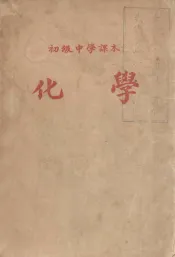 初級中学課本
化學